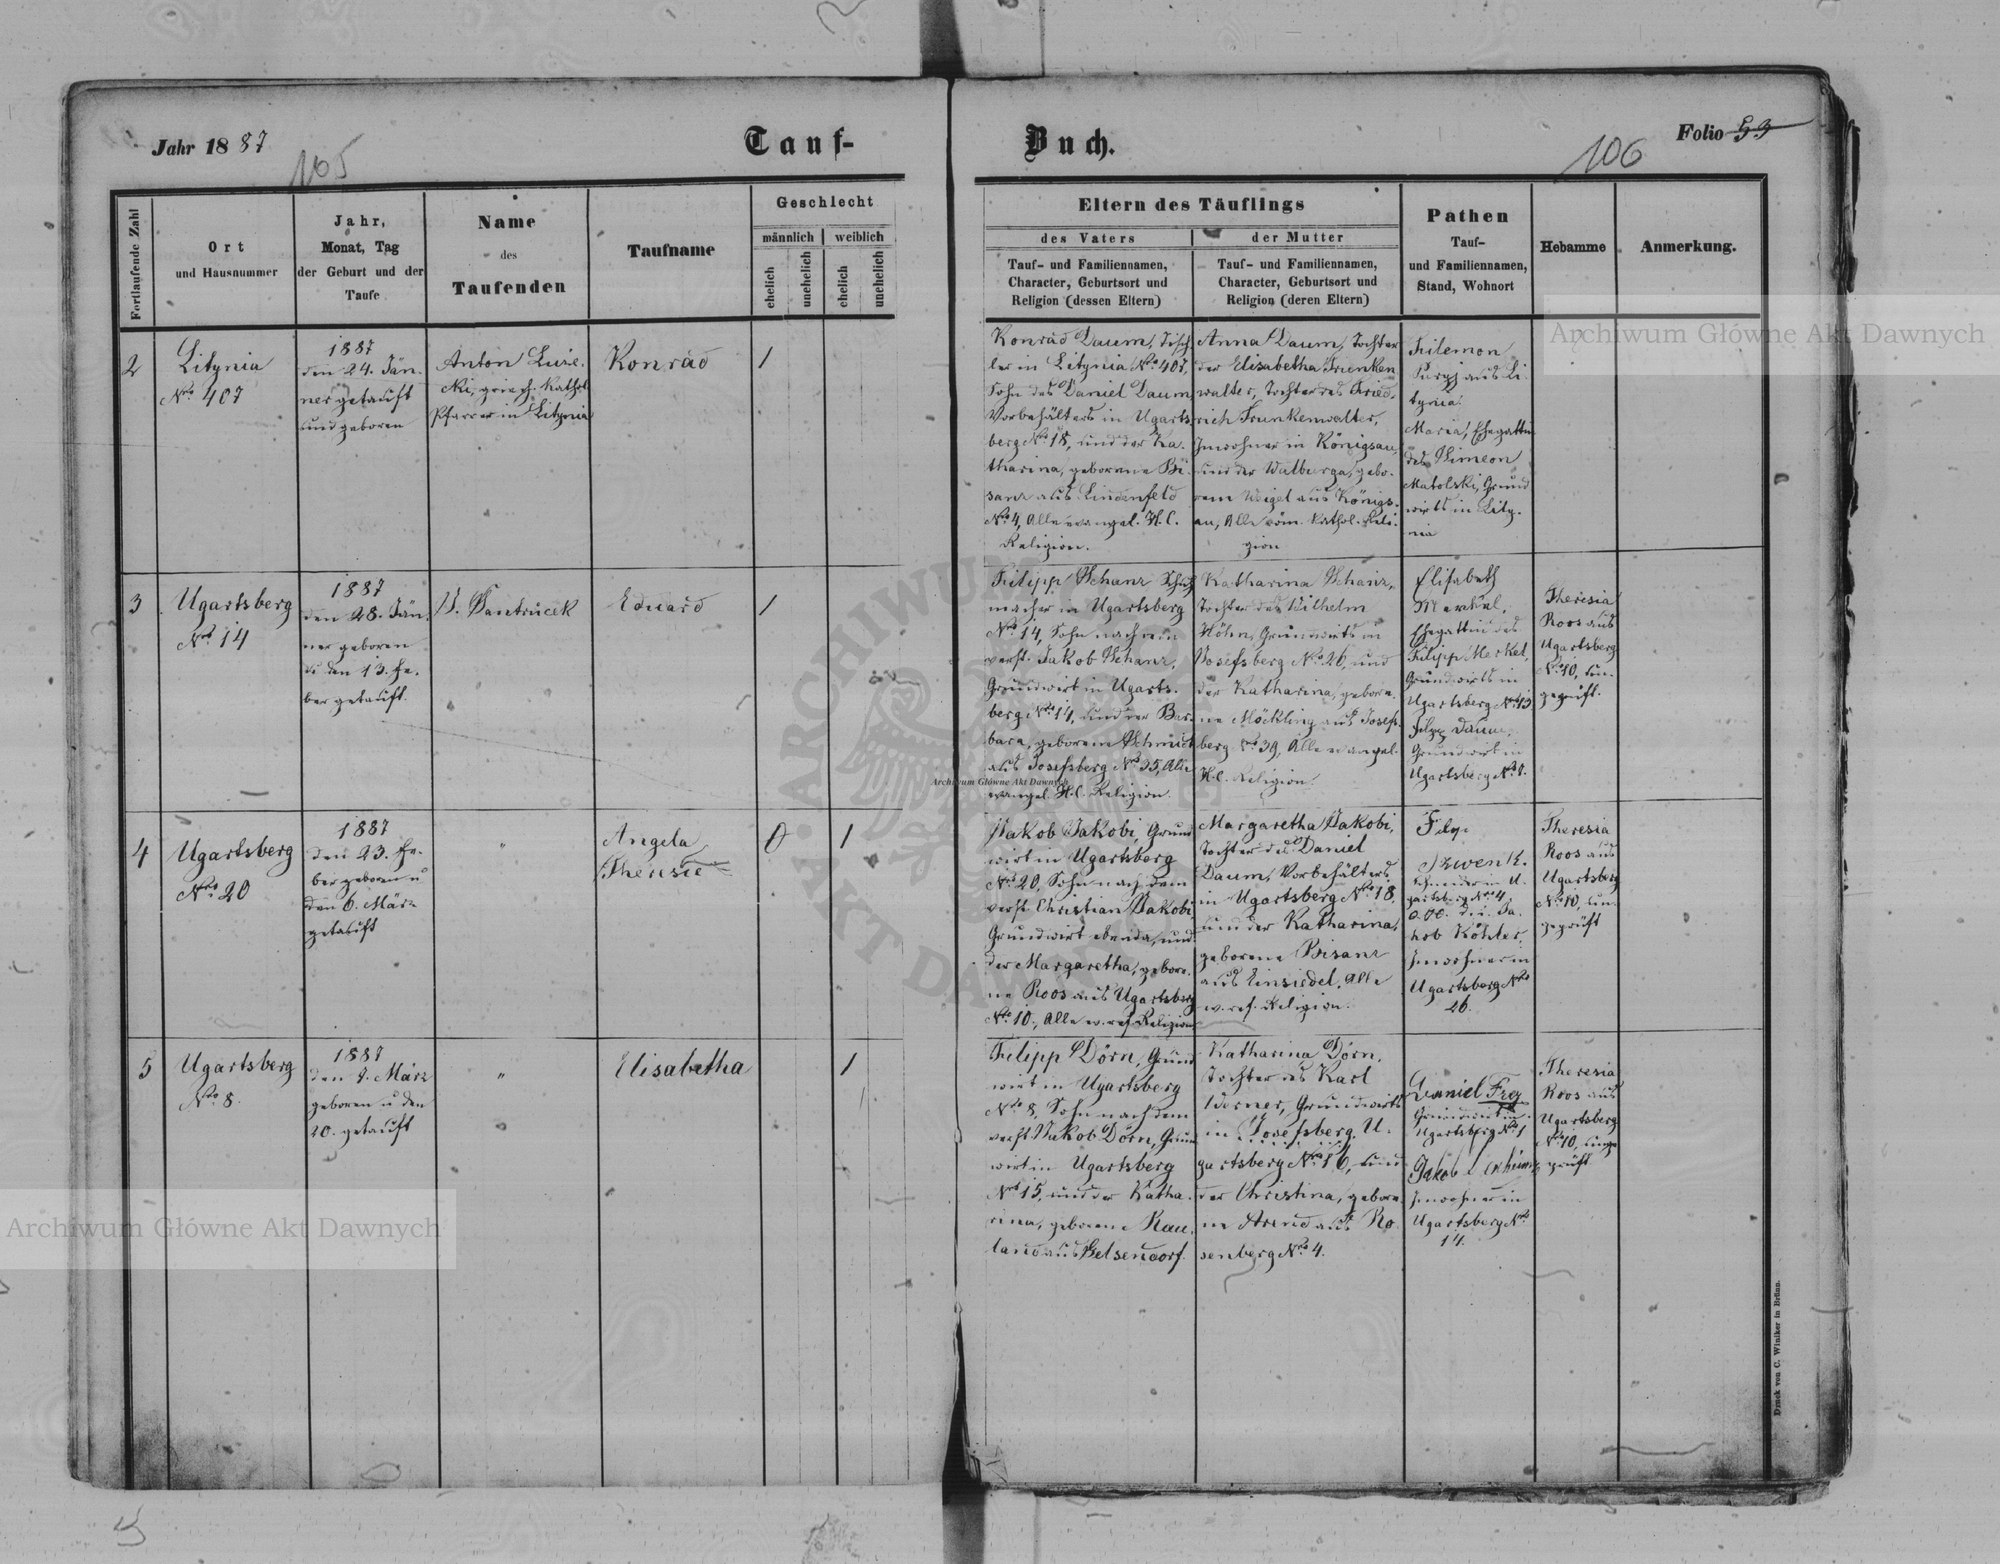 Jahr 1887
105
Tauf-
Buch.
106
Folio 53
Fortlaufende Zahl
Ort
und Hausnummer
Jahr,
Monat, Tag
der Geburt und der
Taufe
Name
des
Taufenden
Taufname
Geschlecht
männlich
weiblich
ehelich
unehelich
ehelich
unehelich
Eltern des Täuflings
des Vaters
Tauf- und Familiennamen,
Character, Geburtsort und
Religion (dessen Eltern)
der Mutter
Tauf- und Familiennamen,
Character, Geburtsort und
Religion (deren Eltern)
Pathen
Tauf-
und Familiennamen,
Stand, Wohnort
Hebamme
Anmerkung.
2
Litynia
No 407
1887
den 24. Jän-
ner getauft
und geboren
Anton
cki, griech. kathol.
Pfarrer in Litynia
Konrad
1
Konrad Daum, Tisch-
ler in Litynia No 407,
Sohn des Daniel Daum,
Vorbehälters in Ugarts-
berg No 18, und der Ka-
tharina, geborene Bi-
sanz aus Lindenfeld
No 4, Alle evangel. H. C.
Religion.
Anna Daum, Tochter
der Elisabetha Trunken
walter, Tochter des Fried-
rich Trunkenwalter,
Inwohner in Königsau,
und der Walburga, gebo-
rene Weigel aus Königs-
au, Alle röm. kathol. Reli-
gion
Filemon
aus Li-
tynia
Maria, Ehegattin
des Simeon
Matolski, Grund
wirts in Lity-
nia
3
Ugartsberg
No 14
1887
den 28. Jän-
ner geboren
u den 13. Fe-
ber getauft.
J. Jantrucek
Eduard
1
Filipp Schanz Schuh
macher in Ugartsberg
No 14, Sohn nach dem
verst. Jakob Schanz,
Grundwirt in Ugarts-
berg No 14, und der Bar-
bara, geborene Schmidt
aus Josefsberg No 35, Alle
evangel. H. C. Religion.
Katharina Schanz,
Tochter des Wilhelm
Höhn, Grundwirts in
Josefsberg No 26, und
der Katharina, gebore-
ne Möckling aus Josefs-
berg No 39, Alle evangel.
H. C. Religion
Elisabeth
Merkel,
Ehegattin des
Filipp Merkel,
Grundwirts in
Ugartsberg No 13
Filipp Daum,
Grundwirt in
Ugartsberg No 9.
Theresia
Roos aus
Ugartsberg
No 10, un-
geprüft.
4
Ugartsberg
No 20
1887
den 23. Fe-
ber geboren u
den 6. März
getauft
"
Angela
Theresie
0
1
Jakob Jakobi, Grund
wirt in Ugartsberg
No 20, Sohn nach dem
verst. Christian Jakobi
Grundwirt ebenda, und
der Margaretha, gebore-
ne Roos aus Ugartsberg
No 10., Alle ev. ref. Religion
Margaretha Jakobi,
Tochter des Daniel
Daum, Vorbehälters
in Ugartsberg No 18,
und der Katharina,
geborene Bisanz
aus Einsiedel, Alle
ev. ref. Religion.
Filip
Zwenk.
Schneider in U-
gartsberg No 4,
Ja-
kob Köhler,
Inwohner in
Ugartsberg No
26.
Theresia
Roos aus
Ugartsberg
No 10, un-
geprüft
5
Ugartsberg
No 8.
1887
den 9. März
geboren u den
20. getauft
"
Elisabetha
1
Filipp Dörn, Grund
wirt in Ugartsberg
No 8, Sohn nach dem
verst Jakob Dörn, Grund
wirt in Ugartsberg
No 15, und der Katha-
rina, geborene Rau-
land aus Gelsendorf.
Katharina Dörn,
Tochter des Karl
Dörner, Grundwirts
in Josefsberg. U-
gartsberg No 16, und
der Christina, gebore-
ne Arend aus Ro-
senberg No 4.
Daniel Frey
Grundwirt in
Ugartsberg No 1
Jakob
Inwohner in
Ugartsberg No
14.
Theresia
Roos aus
Ugartsberg
No 10, unge-
prüft
Druck von C. Winiker in Brünn.
Archiwum Główne Akt Dawnych
Archiwum Główne Akt Dawnych
Archiwum Główne Akt Dawnych